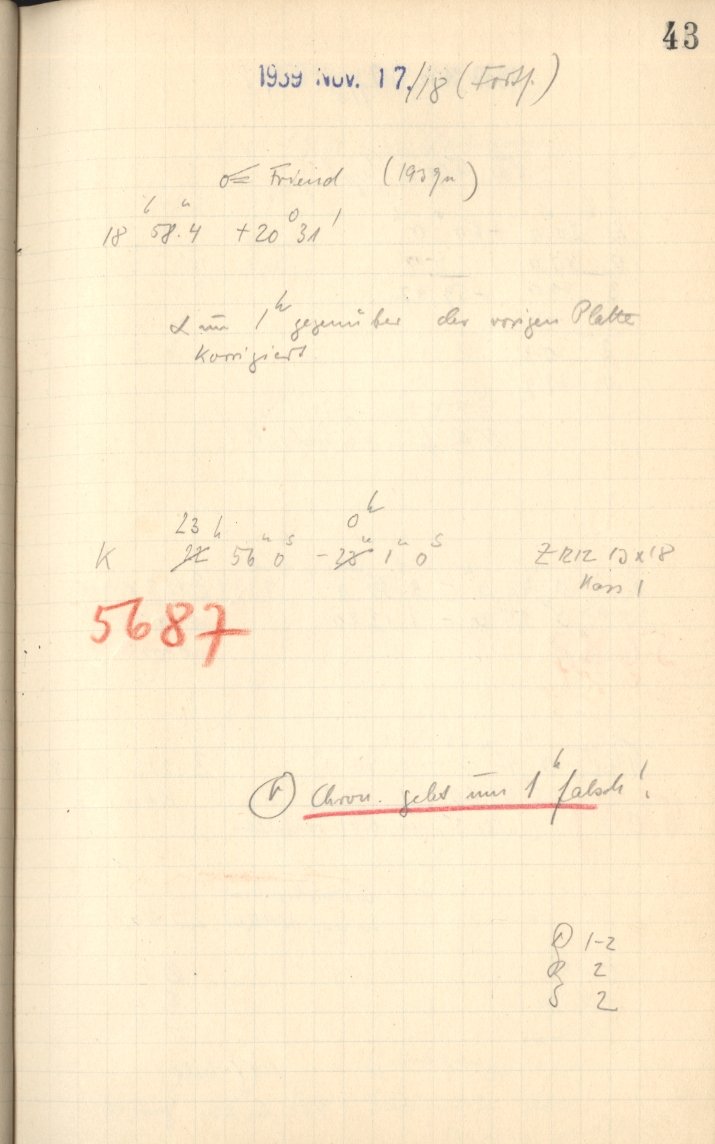 43
1939 Nov. 17./18 (Forts.)
☄ Friend (1939n)
18 h 58.4 m +20° 31'
α um 1h gegenüber der vorigen Platte
Korrigiert
23 h 0h
K 22 56 m 0 s - 23 h 1 m 0 s ZRIZ 13 x 18
Kass 1
5687
Chron. geht um 1h falsch!
1-2
R 2
S 2